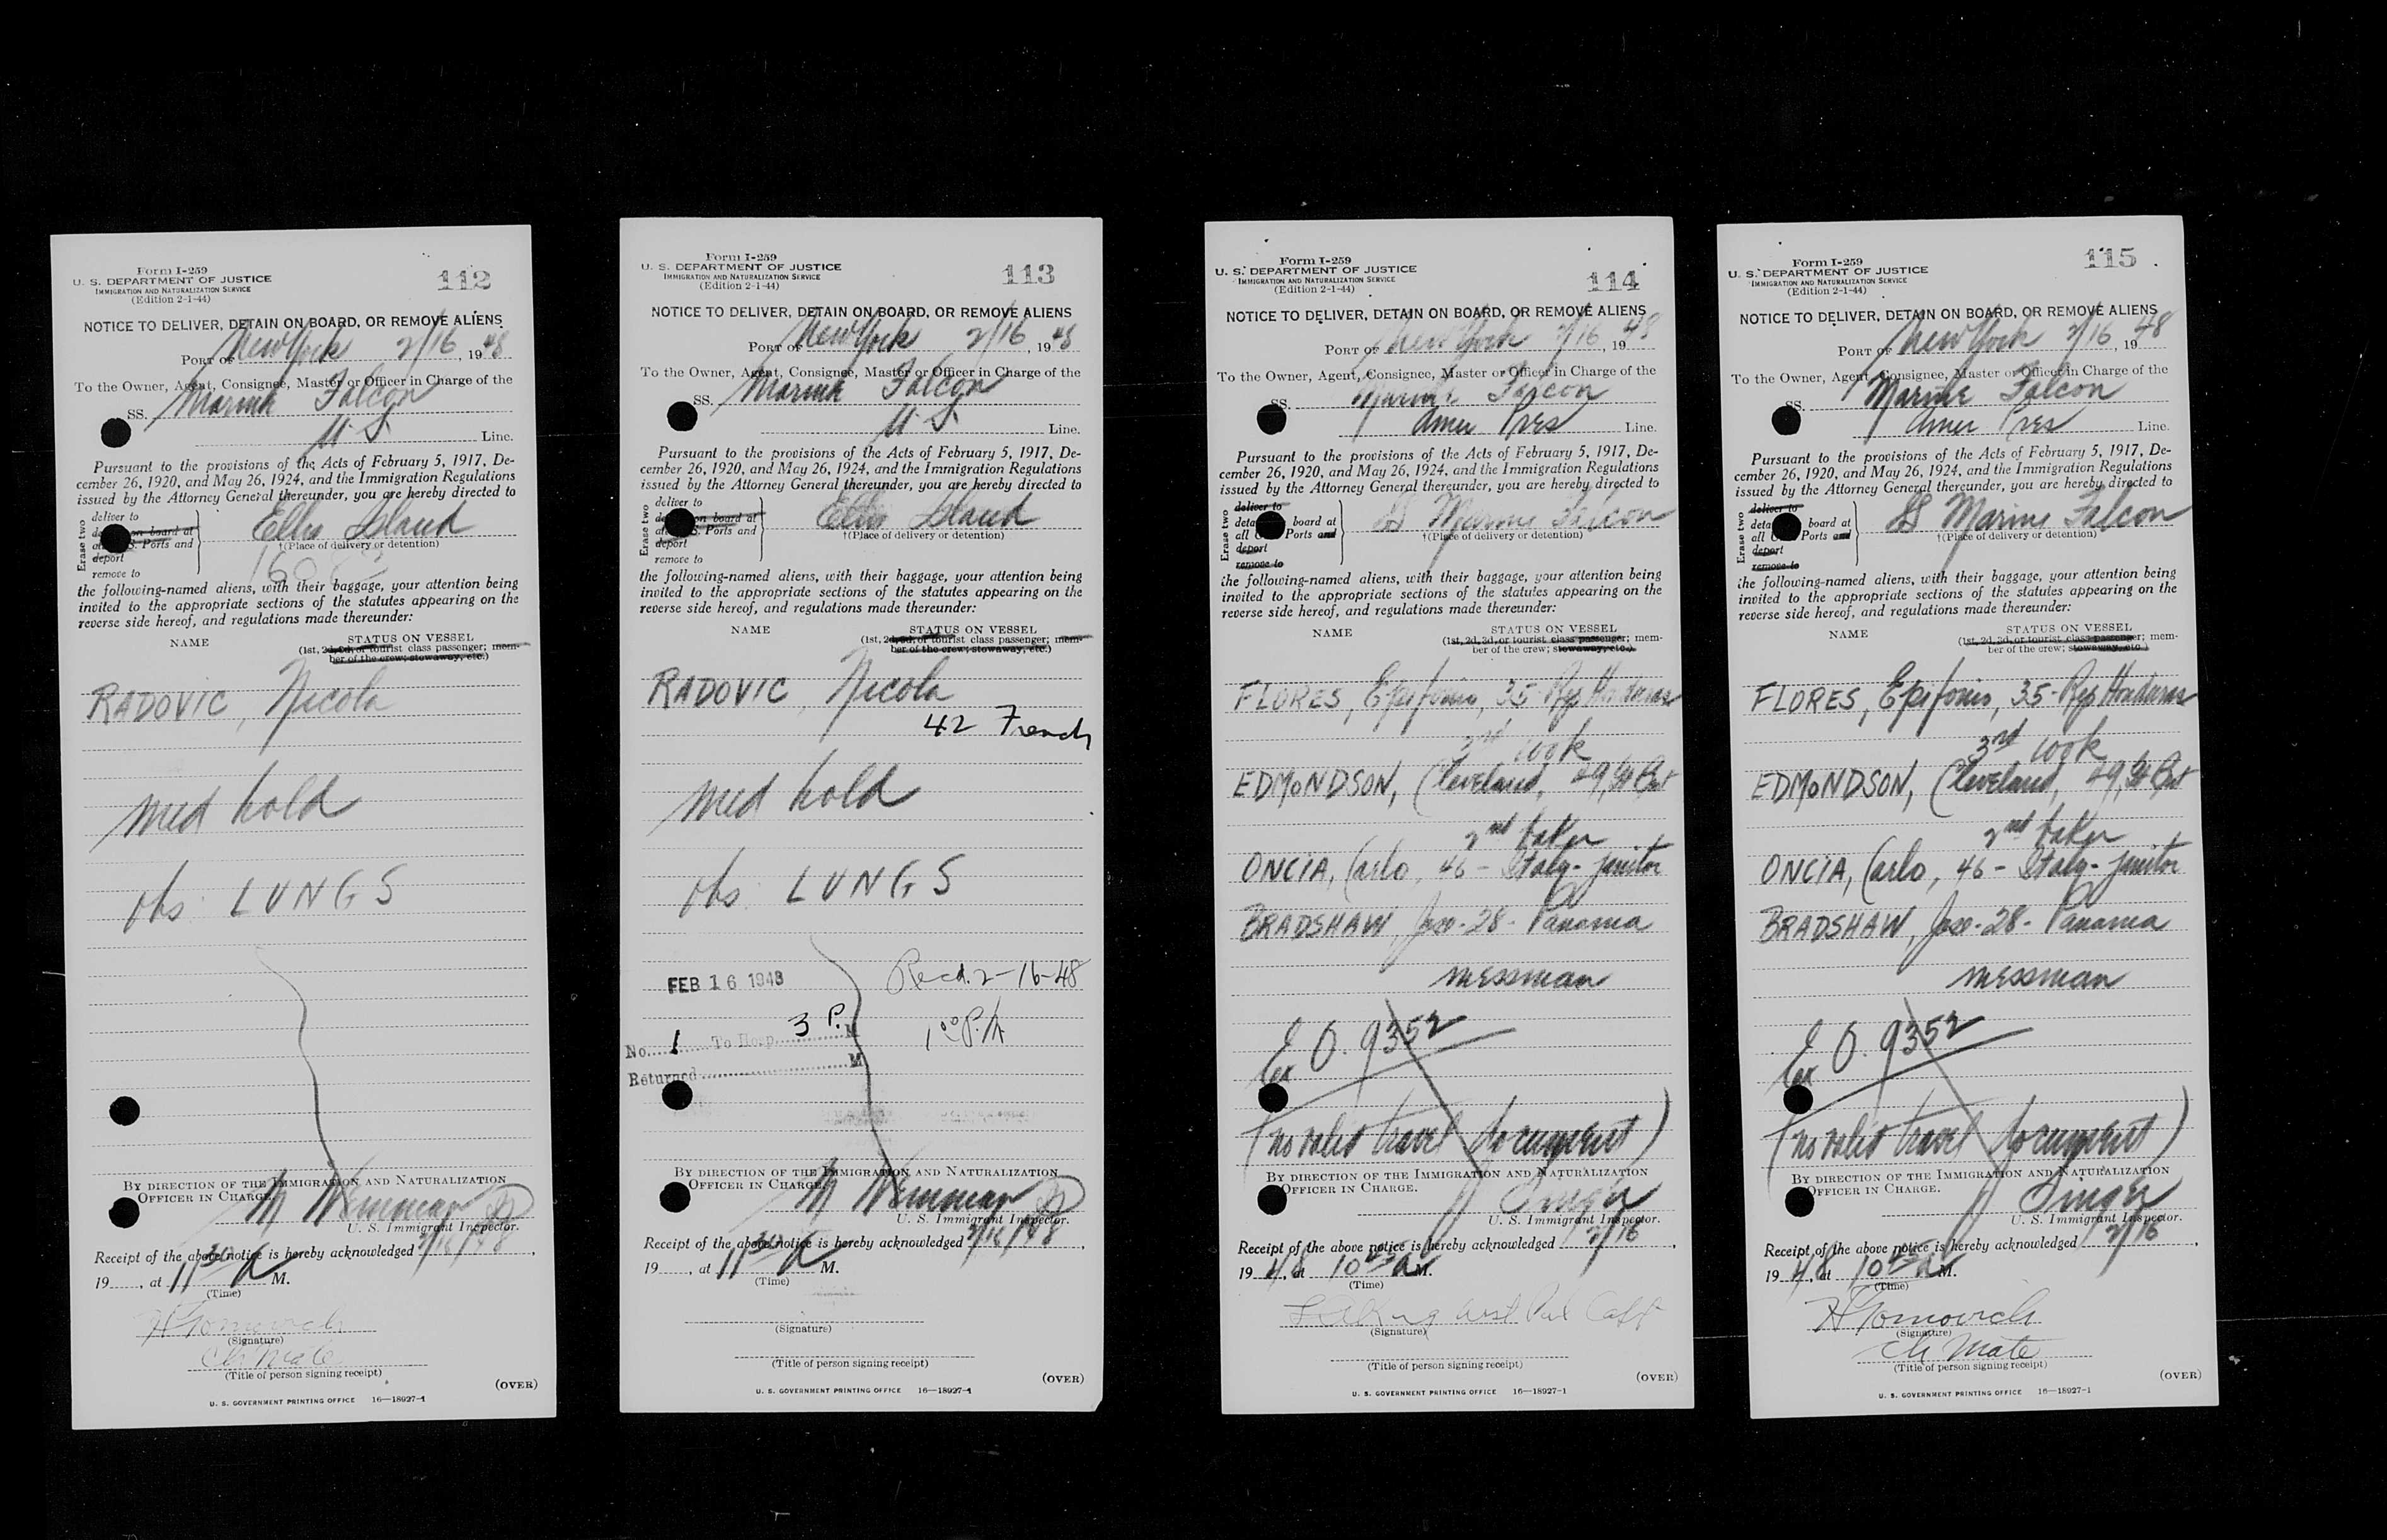 Form I-259
U. S. DEPARTMENT OF JUSTICE
IMMIGRATION AND NATURALIZATION SERVICE
(Edition 2-1-44)
112
NOTICE TO DELIVER, DETAIN ON BOARD, OR REMOVE ALIENS
PORT OF New York 2/16, 1948
To the Owner, Agent, Consignee, Master or Officer in Charge of the
SS. Marine Falcon
U S Line.
Pursuant to the provisions of the Acts of February 5, 1917, De-
cember 26, 1920, and May 26, 1924, and the Immigration Regulations
issued by the Attorney General thereunder, you are hereby directed to
Erase two
deliver to
on board at
Ports and
deport
remove to
Ellis Island
†(Place of delivery or detention)
the following-named aliens, with their baggage, your attention being
invited to the appropriate sections of the statutes appearing on the
reverse side hereof, and regulations made thereunder:
NAME
STATUS ON VESSEL
(1st, 2d, 3d, or tourist class passenger; mem-
ber of the crew; stowaway, etc.)
RADOVIC, Nicola
med hold
obs. LUNGS
BY DIRECTION OF THE IMMIGRATION AND NATURALIZATION
OFFICER IN CHARGE.
U. S. Immigrant Inspector.
Receipt of the above notice is hereby acknowledged 2/16/48,
19...., at 11 30 A M.
(Time)
H Tomovich
(Signature)
Ch Mate
(Title of person signing receipt)
(OVER)
U. S. GOVERNMENT PRINTING OFFICE 16—18927-1
Form I-259
U. S. DEPARTMENT OF JUSTICE
IMMIGRATION AND NATURALIZATION SERVICE
(Edition 2-1-44)
113
NOTICE TO DELIVER, DETAIN ON BOARD, OR REMOVE ALIENS
PORT OF New York 2/16, 1948
To the Owner, Agent, Consignee, Master or Officer in Charge of the
SS. Marine Falcon
U S Line.
Pursuant to the provisions of the Acts of February 5, 1917, De-
cember 26, 1920, and May 26, 1924, and the Immigration Regulations
issued by the Attorney General thereunder, you are hereby directed to
Erase two
deliver to
on board at
Ports and
deport
remove to
Ellis Island
†(Place of delivery or detention)
the following-named aliens, with their baggage, your attention being
invited to the appropriate sections of the statutes appearing on the
reverse side hereof, and regulations made thereunder:
NAME
STATUS ON VESSEL
(1st, 2d, 3d, or tourist class passenger; mem-
ber of the crew; stowaway, etc.)
RADOVIC, Nicola
42 French
med hold
obs. LUNGS
FEB 16 1948
Recd. 2-16-48
No. 1 To Hosp. 3 P. M
1 00 P.M
Returned M
BY DIRECTION OF THE IMMIGRATION AND NATURALIZATION
OFFICER IN CHARGE.
U. S. Immigrant Inspector.
Receipt of the above notice is hereby acknowledged 2/16/48,
19...., at 11 30 A M.
(Time)
(Signature)
(Title of person signing receipt)
(OVER)
U. S. GOVERNMENT PRINTING OFFICE 16—18927-1
Form I-259
U. S. DEPARTMENT OF JUSTICE
IMMIGRATION AND NATURALIZATION SERVICE
(Edition 2-1-44)
114
NOTICE TO DELIVER, DETAIN ON BOARD, OR REMOVE ALIENS
PORT OF New York 2/16, 1948
To the Owner, Agent, Consignee, Master or Officer in Charge of the
SS. Marine Falcon
Amer Pres Line.
Pursuant to the provisions of the Acts of February 5, 1917, De-
cember 26, 1920, and May 26, 1924, and the Immigration Regulations
issued by the Attorney General thereunder, you are hereby directed to
Erase two
deliver to
board at
all Ports and
deport
remove to
SS Marine Falcon
†(Place of delivery or detention)
the following-named aliens, with their baggage, your attention being
invited to the appropriate sections of the statutes appearing on the
reverse side hereof, and regulations made thereunder:
NAME
STATUS ON VESSEL
(1st, 2d, 3d, or tourist class passenger; mem-
ber of the crew; stowaway, etc.)
FLORES, Epifonio, 35- Rep Honduras
3rd cook
EDMONDSON, Cleveland, 49, Gt Brt
2nd baker
ONCIA, Carlo, 46 - Italy - janitor
BRADSHAW, Jose - 28 - Panama
messman
Ex O. 9352
(no valid travel document)
BY DIRECTION OF THE IMMIGRATION AND NATURALIZATION
OFFICER IN CHARGE.
U. S. Immigrant Inspector.
Receipt of the above notice is hereby acknowledged 2/16,
1948, at 10 45 A M.
(Time)
(Signature)
(Title of person signing receipt)
(OVER)
U. S. GOVERNMENT PRINTING OFFICE 16—18927-1
Form I-259
U. S. DEPARTMENT OF JUSTICE
IMMIGRATION AND NATURALIZATION SERVICE
(Edition 2-1-44)
115
NOTICE TO DELIVER, DETAIN ON BOARD, OR REMOVE ALIENS
PORT OF New York 2/16, 1948
To the Owner, Agent, Consignee, Master or Officer in Charge of the
SS. Marine Falcon
Amer Pres Line.
Pursuant to the provisions of the Acts of February 5, 1917, De-
cember 26, 1920, and May 26, 1924, and the Immigration Regulations
issued by the Attorney General thereunder, you are hereby directed to
Erase two
deliver to
board at
all Ports and
deport
remove to
SS Marine Falcon
†(Place of delivery or detention)
the following-named aliens, with their baggage, your attention being
invited to the appropriate sections of the statutes appearing on the
reverse side hereof, and regulations made thereunder:
NAME
STATUS ON VESSEL
(1st, 2d, 3d, or tourist class passenger; mem-
ber of the crew; stowaway, etc.)
FLORES, Epifonio, 35- Rep Honduras
3rd cook
EDMONDSON, Cleveland, 49, Gt Brt
2nd baker
ONCIA, Carlo, 46 - Italy - janitor
BRADSHAW, Jose - 28 - Panama
messman
Ex O. 9352
(no valid travel document)
BY DIRECTION OF THE IMMIGRATION AND NATURALIZATION
OFFICER IN CHARGE.
U. S. Immigrant Inspector.
Receipt of the above notice is hereby acknowledged 2/16,
1948, at 10 45 A M.
(Time)
H Tomovich
(Signature)
Ch Mate
(Title of person signing receipt)
(OVER)
U. S. GOVERNMENT PRINTING OFFICE 16—18927-1